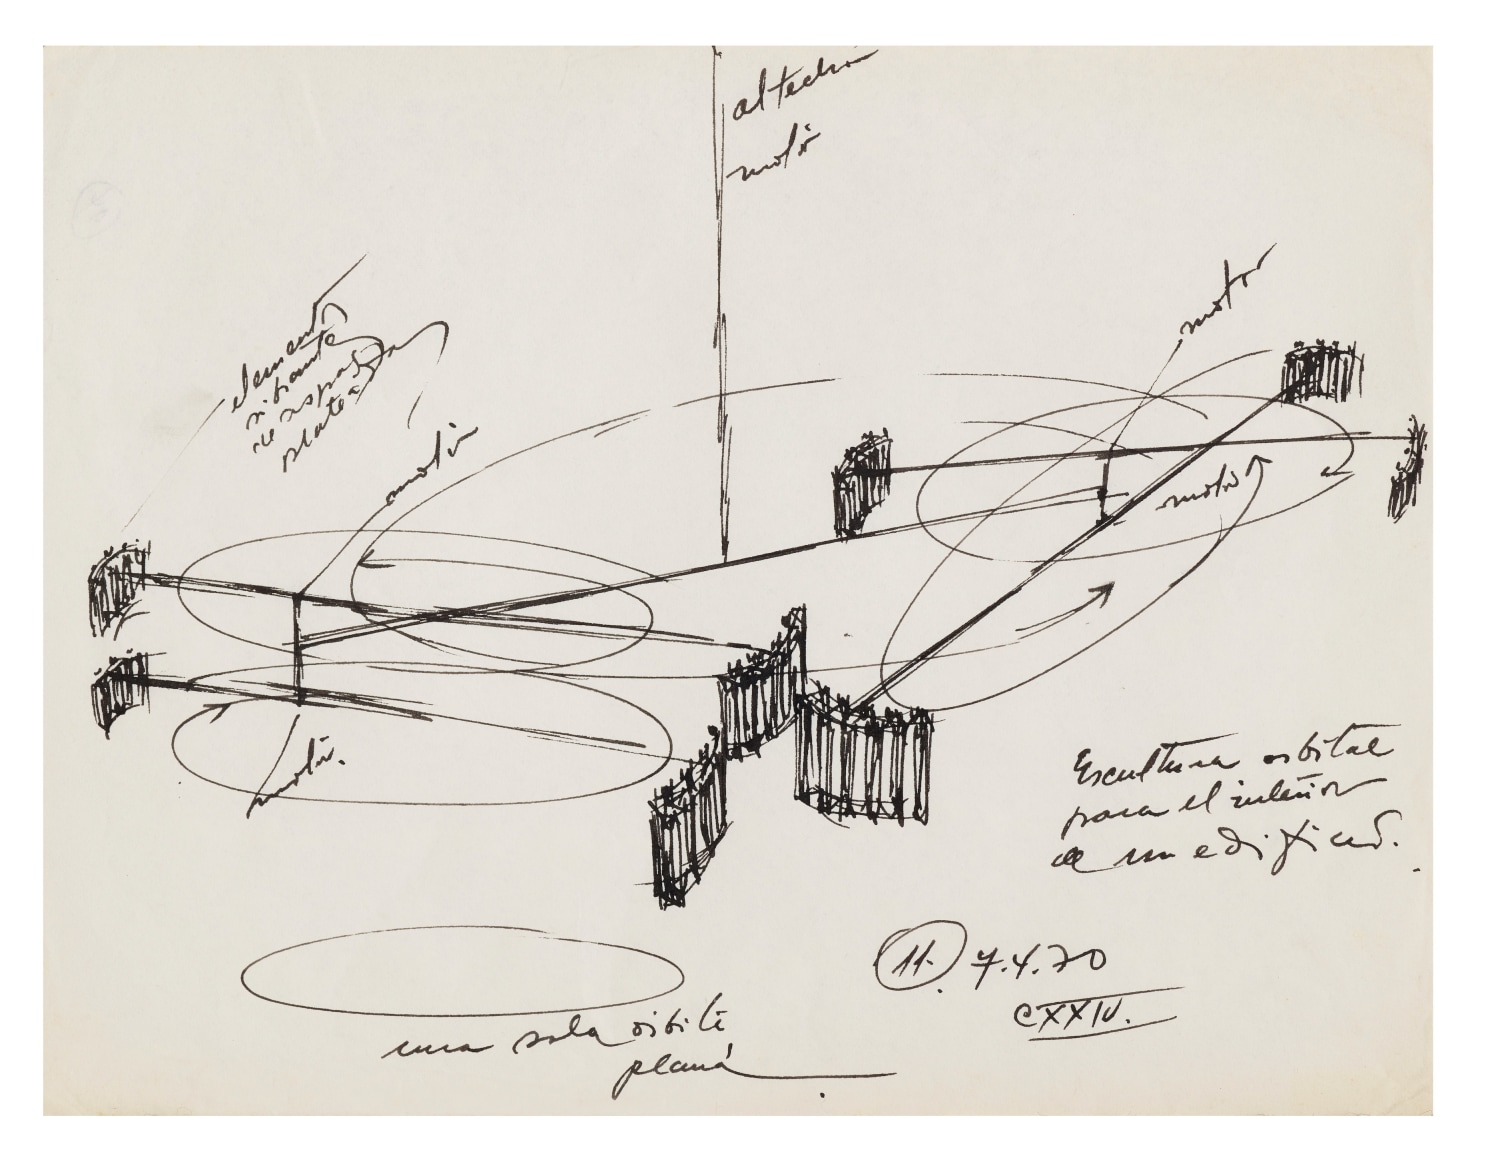 al techo
motor
motor
elemento
vibrante
plata
motor
motor
motor.
Escultura orbital
para el interior
de un edificio.
11. 7.4.70
CXXIV.
una sola orbita
plana